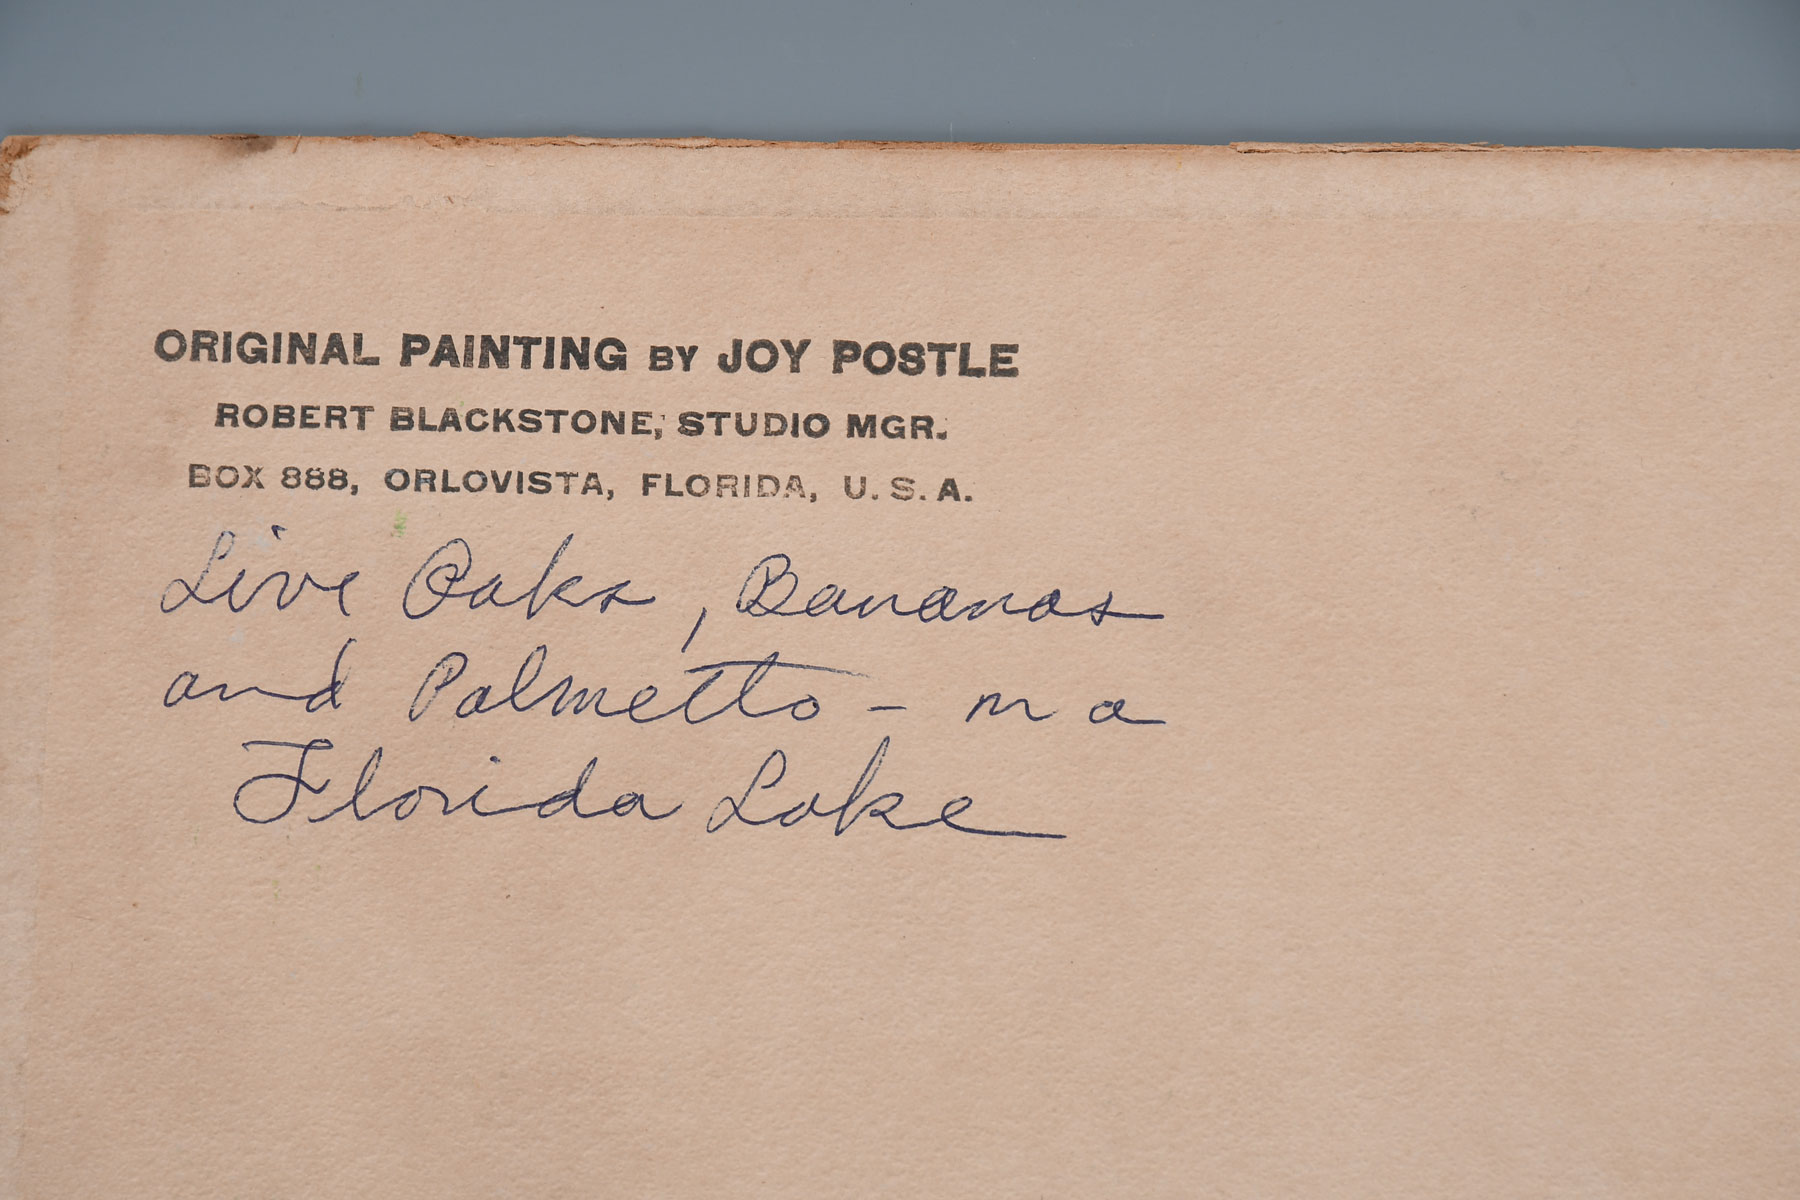 ORIGINAL PAINTING BY JOY POSTLE
ROBERT BLACKSTONE, STUDIO MGR.
BOX 888, ORLOVISTA, FLORIDA, U.S.A.
Live Oaks, Bananas
and Palmetto - on a
Florida Lake